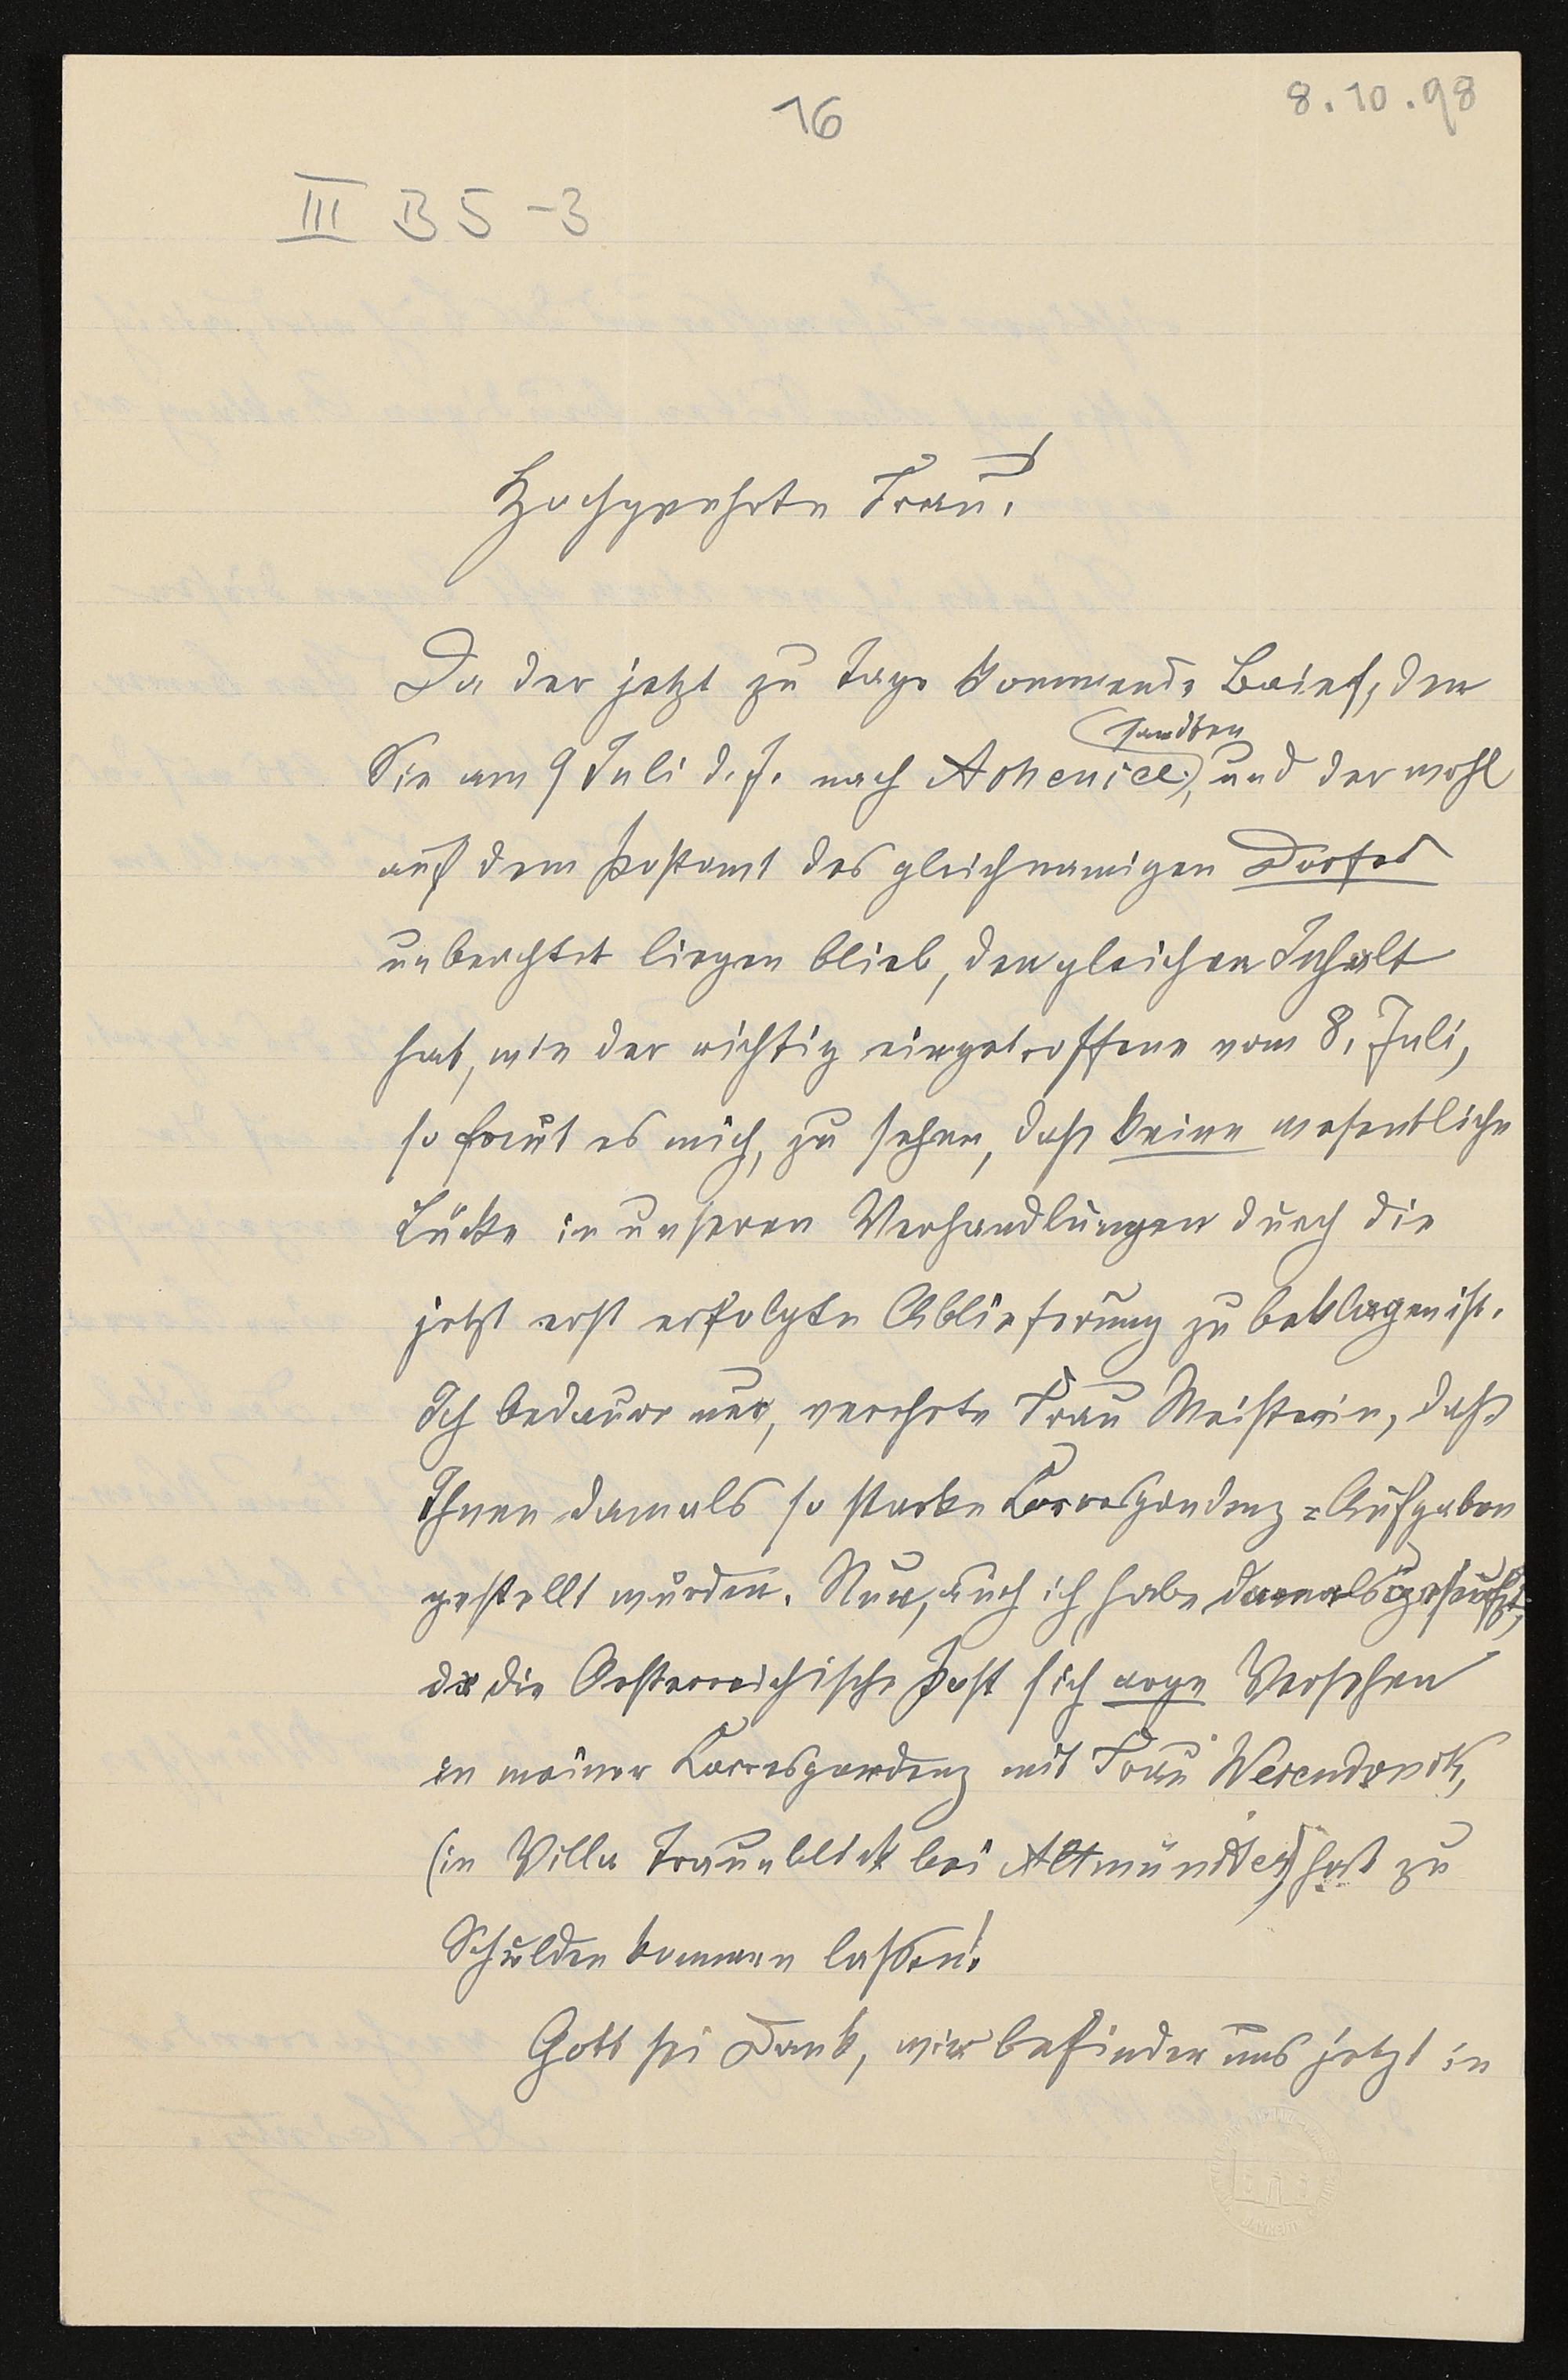 16
8.10.98
III B 5 - 3
Hochgeehrte Frau!
Da der jetzt zu Tage kommende Brief, den
sandten
Sie am 9 Juli d. J. nach Achensee, und der wohl
auf dem Postamt des gleichnamigen Dorfes
unbeachtet liegen blieb, den gleichen Inhalt
hat, wie der richtig eingetroffene vom 8. Juli,
so freut es mich, zu sehen, daß keine wesentliche
Lücke in unseren Verhandlungen durch die
jetzt erst erfolgte Ablieferung zu beklagen ist.
Ich bedaure nur, verehrte Frau Meisterin, daß
Ihnen damals so starke Correspondenz-Aufgaben
gestellt wurden. Nun, auch ich habe damals geseufzt,
da die Oesterreichische Post sich arge Versehen
in meiner Correspondenz mit Frau Wesendonck,
(in Villa Traunblick bei Altmünster) hat zu
Schulden kommen lassen!
Gott sei Dank, wir befinden uns jetzt in